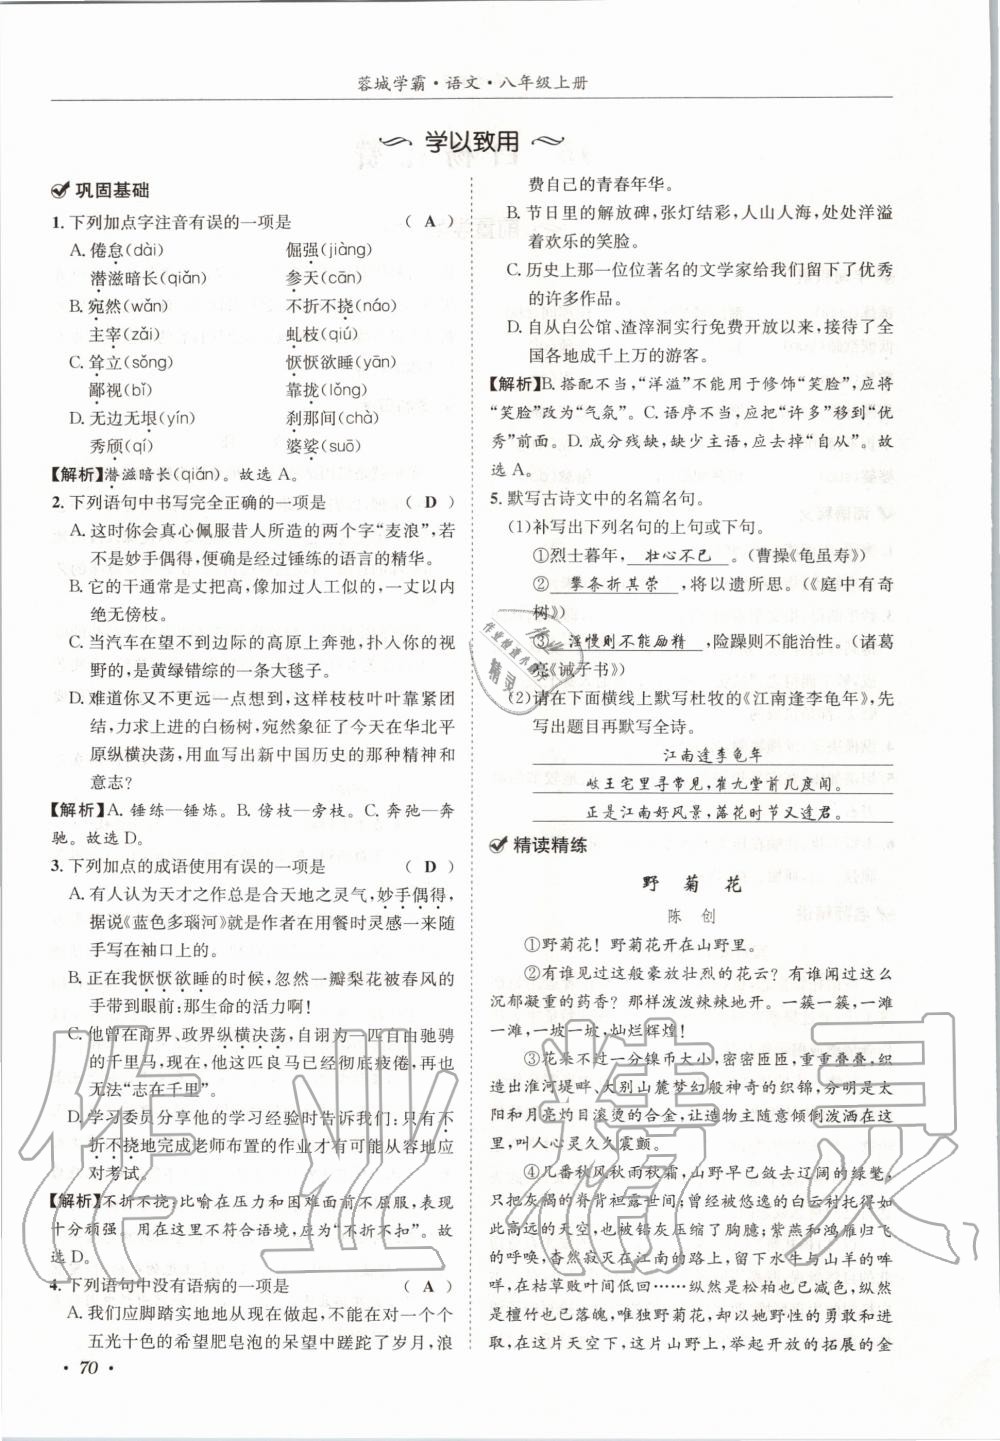 蓉城学霸·语文·八年级上册
学以致用
巩固基础
1.下列加点字注音有误的一项是 ( A )
A.倦怠(dài) 倔强(jiàng)
潜滋暗长(qiǎn) 参天(cān)
B.宛然(wǎn) 不折不挠(náo)
主宰(zǎi) 虬枝(qiú)
C.耸立(sǒng) 恹恹欲睡(yān)
鄙视(bǐ) 靠拢(lǒng)
D.无边无垠(yín) 刹那间(chà)
秀颀(qí) 婆娑(suō)
【解析】潜滋暗长(qián)。故选A。
2.下列语句中书写完全正确的一项是 ( D )
A.这时你会真心佩服昔人所造的两个字“麦浪”,若
不是妙手偶得,便确是经过锤练的语言的精华。
B.它的干通常是丈把高,像加过人工似的,一丈以内
绝无傍枝。
C.当汽车在望不到边际的高原上奔弛,扑入你的视
野的,是黄绿错综的一条大毯子。
D.难道你又不更远一点想到,这样枝枝叶叶靠紧团
结,力求上进的白杨树,宛然象征了今天在华北平
原纵横决荡,用血写出新中国历史的那种精神和
意志?
【解析】A.锤练—锤炼。B.傍枝—旁枝。C.奔弛—奔
驰。故选D。
3.下列加点的成语使用有误的一项是 ( D )
A.有人认为天才之作总是合天地之灵气,妙手偶得,
据说《蓝色多瑙河》就是作者在用餐时灵感一来随
手写在袖口上的。
B.正在我恹恹欲睡的时候,忽然一瓣梨花被春风的
手带到眼前:那生命的活力啊!
C.他曾在商界、政界纵横决荡,自诩为一匹自由驰骋
的千里马,现在,他这匹良马已经彻底疲倦,再也
无法“志在千里”。
D.学习委员分享他的学习经验时告诉我们:只有不
折不挠地完成老师布置的作业才有可能从容地应
对考试。
【解析】不折不挠:比喻在压力和困难面前不屈服,表现
十分顽强。用在这里不符合语境,应为“不折不扣”。故
选D。
4.下列语句中没有语病的一项是 ( A )
A.我们应脚踏实地地从现在做起,不能在对一个个
五光十色的希望肥皂泡的呆望中蹉跎了岁月,浪
费自己的青春年华。
B.节日里的解放碑,张灯结彩,人山人海,处处洋溢
着欢乐的笑脸。
C.历史上那一位位著名的文学家给我们留下了优秀
的许多作品。
D.自从白公馆、渣滓洞实行免费开放以来,接待了全
国各地成千上万的游客。
【解析】B.搭配不当,“洋溢”不能用于修饰“笑脸”,应将
“笑脸”改为“气氛”。C.语序不当,应把“许多”移到“优
秀”前面。D.成分残缺,缺少主语,应去掉“自从”。故
选A。
5.默写古诗文中的名篇名句。
(1)补写出下列名句的上句或下句。
①烈士暮年,壮心不已。(曹操《龟虽寿》)
②攀条折其荣,将以遗所思。(《庭中有奇
树》)
③淫慢则不能励精,险躁则不能治性。(诸葛
亮《诫子书》)
(2)请在下面横线上默写杜牧的《江南逢李龟年》,先
写出题目再默写全诗。
江南逢李龟年
岐王宅里寻常见,崔九堂前几度闻。
正是江南好风景,落花时节又逢君。
精读精练
野菊花
陈创
①野菊花!野菊花开在山野里。
②有谁见过这般豪放壮烈的花云?有谁闻过这般
沉郁凝重的药香?那样泼泼辣辣地开。一簇一簇,一滩
一滩,一坡一坡,灿烂辉煌!
③花朵不过一分镍币大小,密密匝匝,重重叠叠,织
造出淮河堤畔、大别山麓梦幻般神奇的织锦,分明是太
阳和月亮灼目滚烫的合金,让造物主随意倾倒泼洒在这
里,叫人心灵久久震颤。
④几番秋风秋雨秋霜,山野早已丧失了辽阔的绿氅,
只把灰褐的脊背袒露世间;曾经被悠逸的白云衬托得如
此高远的天空,也被铅灰压缩了胸臆;紫燕和鸿雁归飞
的呼唤,杳然寂灭在江南的路上,留下水牛与山羊的哞
咩,在枯草败叶间低回……纵然是松柏也已减色,纵然
是檀竹也已落魄,唯独野菊花,却以她野性的勇敢和进
取,在这片天空下,这片山野上,举起开放的拓展的金
·70·
作业精灵
作业检查小助手
作业
精灵